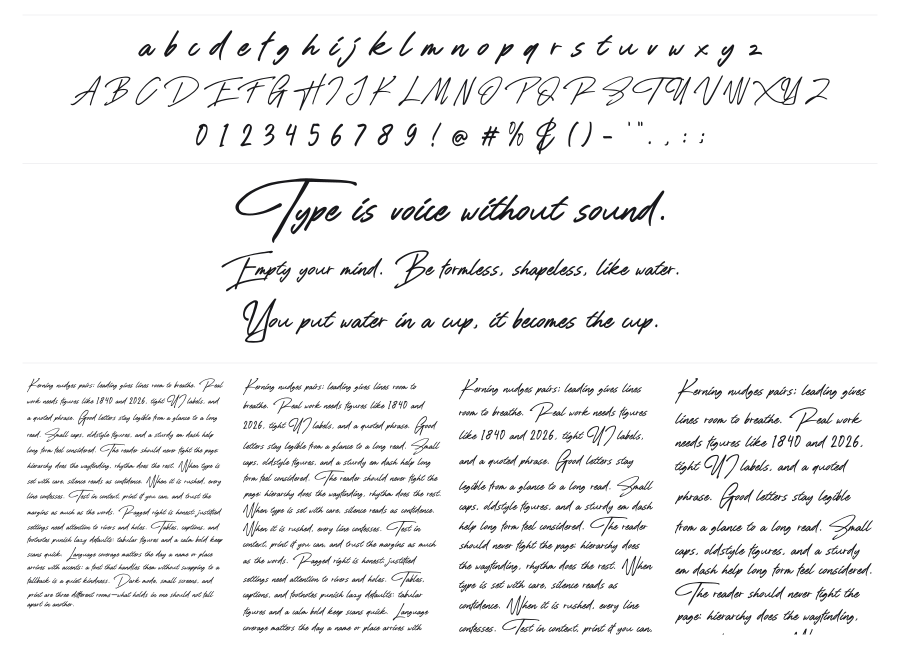 a b c d e f g h i j k l m n o p q r s t u v w x y z
A B C D E F G H I J K L M N O P Q R S T U V W X Y Z
0 1 2 3 4 5 6 7 8 9 ! @ # % & ( ) - ' " . , : ;
Type is voice without sound.
Empty your mind. Be formless, shapeless, like water.
You put water in a cup, it becomes the cup.
Kerning nudges pairs; leading gives lines room to breathe. Real
work needs figures like 1840 and 2026, tight UI labels, and
a quoted phrase. Good letters stay legible from a glance to a long
read. Small caps, oldstyle figures, and a sturdy em dash help
long form feel considered. The reader should never fight the page:
hierarchy does the wayfinding, rhythm does the rest. When type is
set with care, silence reads as confidence. When it is rushed, every
line confesses. Test in context, print if you can, and trust the
margins as much as the words. Ragged right is honest; justified
settings need attention to rivers and holes. Tables, captions, and
footnotes punish lazy defaults: tabular figures and a calm bold keep
scans quick. Language coverage matters the day a name or place
arrives with accents: a font that handles them without swapping to a
fallback is a quiet kindness. Dark mode, small screens, and
print are three different rooms—what holds in one should not fall
apart in another.
Kerning nudges pairs; leading gives lines room to
breathe. Real work needs figures like 1840 and
2026, tight UI labels, and a quoted phrase. Good
letters stay legible from a glance to a long read. Small
caps, oldstyle figures, and a sturdy em dash help long
form feel considered. The reader should never fight the
page: hierarchy does the wayfinding, rhythm does the rest.
When type is set with care, silence reads as confidence.
When it is rushed, every line confesses. Test in
context, print if you can, and trust the margins as much
as the words. Ragged right is honest; justified
settings need attention to rivers and holes. Tables,
captions, and footnotes punish lazy defaults: tabular
figures and a calm bold keep scans quick. Language
coverage matters the day a name or place arrives with
Kerning nudges pairs; leading gives lines
room to breathe. Real work needs figures
like 1840 and 2026, tight UI labels,
and a quoted phrase. Good letters stay
legible from a glance to a long read. Small
caps, oldstyle figures, and a sturdy em dash
help long form feel considered. The reader
should never fight the page: hierarchy does
the wayfinding, rhythm does the rest. When
type is set with care, silence reads as
confidence. When it is rushed, every line
confesses. Test in context, print if you can,
Kerning nudges pairs; leading gives
lines room to breathe. Real work
needs figures like 1840 and 2026,
tight UI labels, and a quoted
phrase. Good letters stay legible
from a glance to a long read. Small
caps, oldstyle figures, and a sturdy
em dash help long form feel considered.
The reader should never fight the
page: hierarchy does the wayfinding,